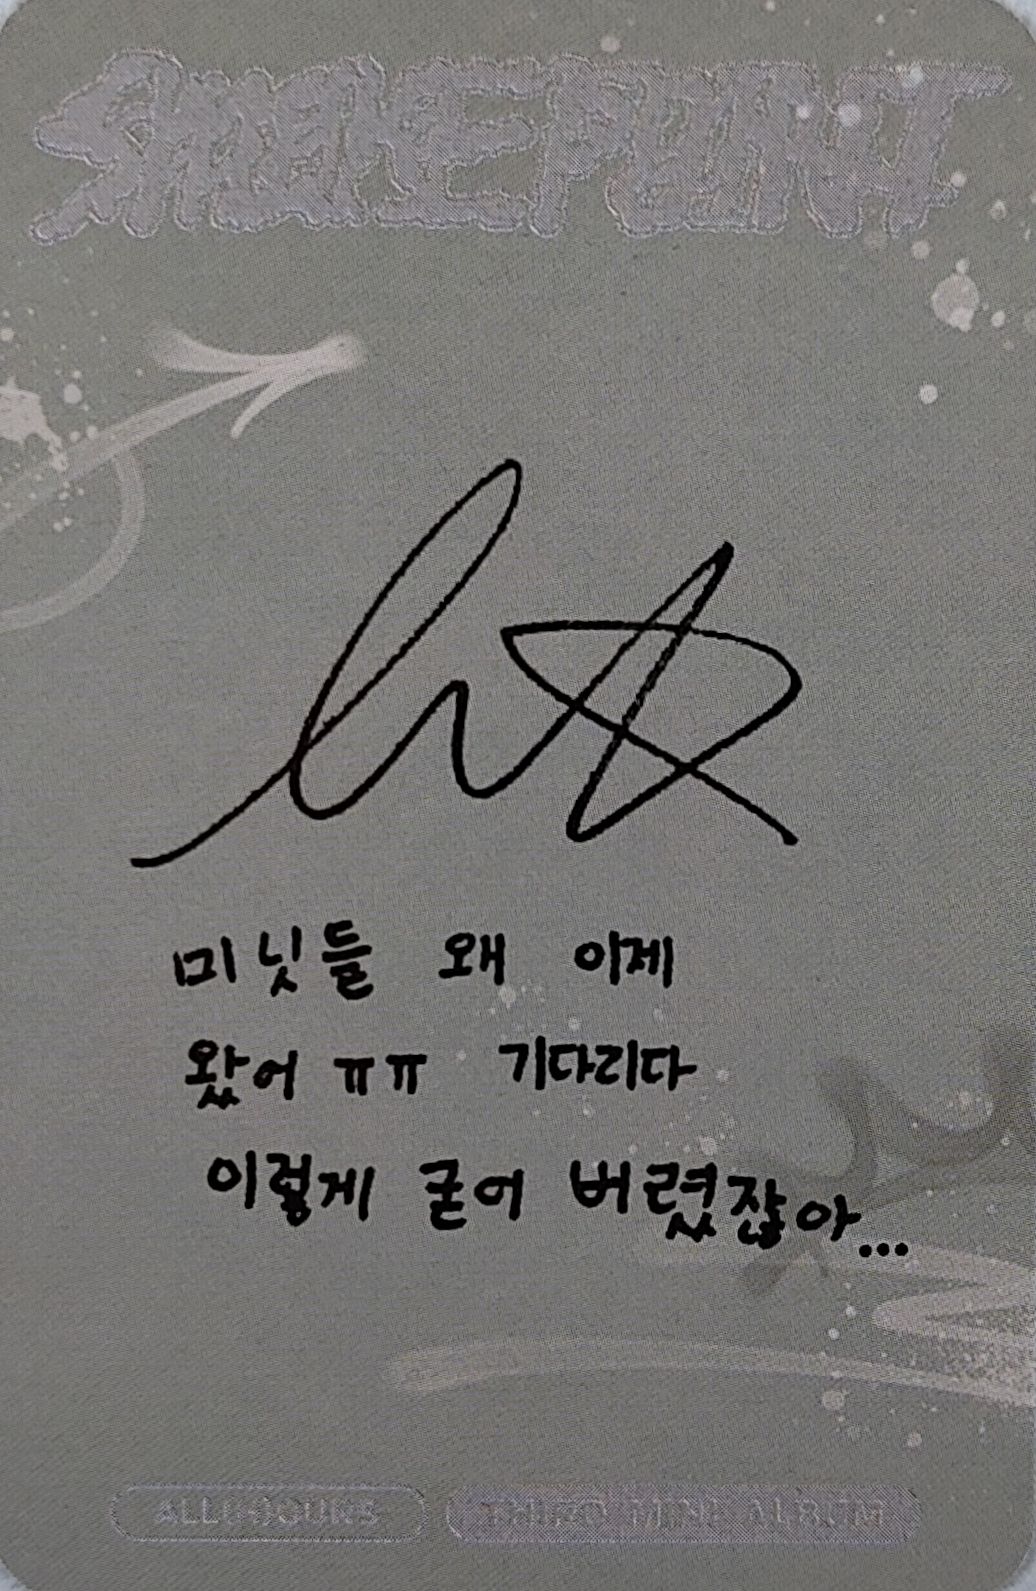 SMOKE POINT
미닛들 왜 이제
왔어 ㅠㅠ 기다리다
이렇게 굳어 버렸잖아...
ALL(H)OURS THIRD MINI ALBUM